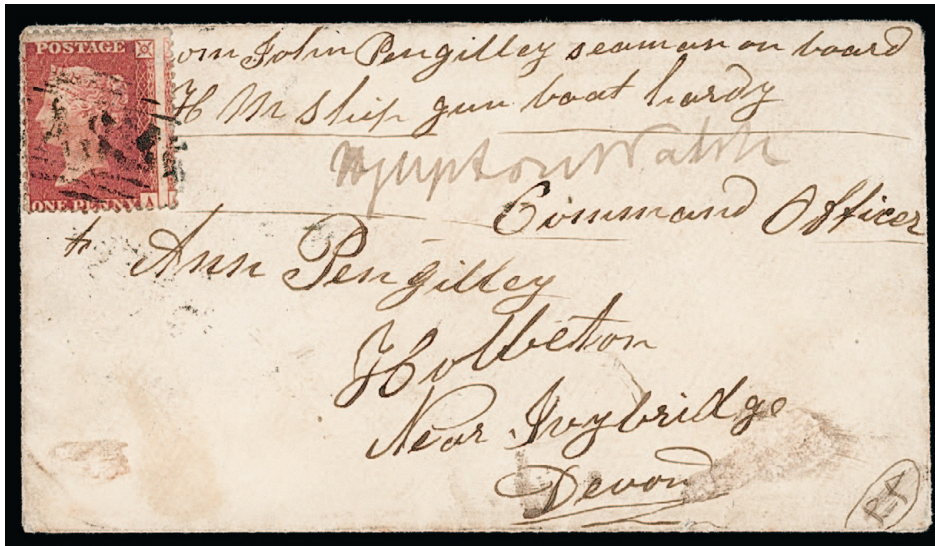 POSTAGE
ONE PENNY A
om John Pengilley seaman on board
H M ship gun boat hardy
Command Officer
to Ann Pengilley
Holbeton
Near Ivybridge
Devon